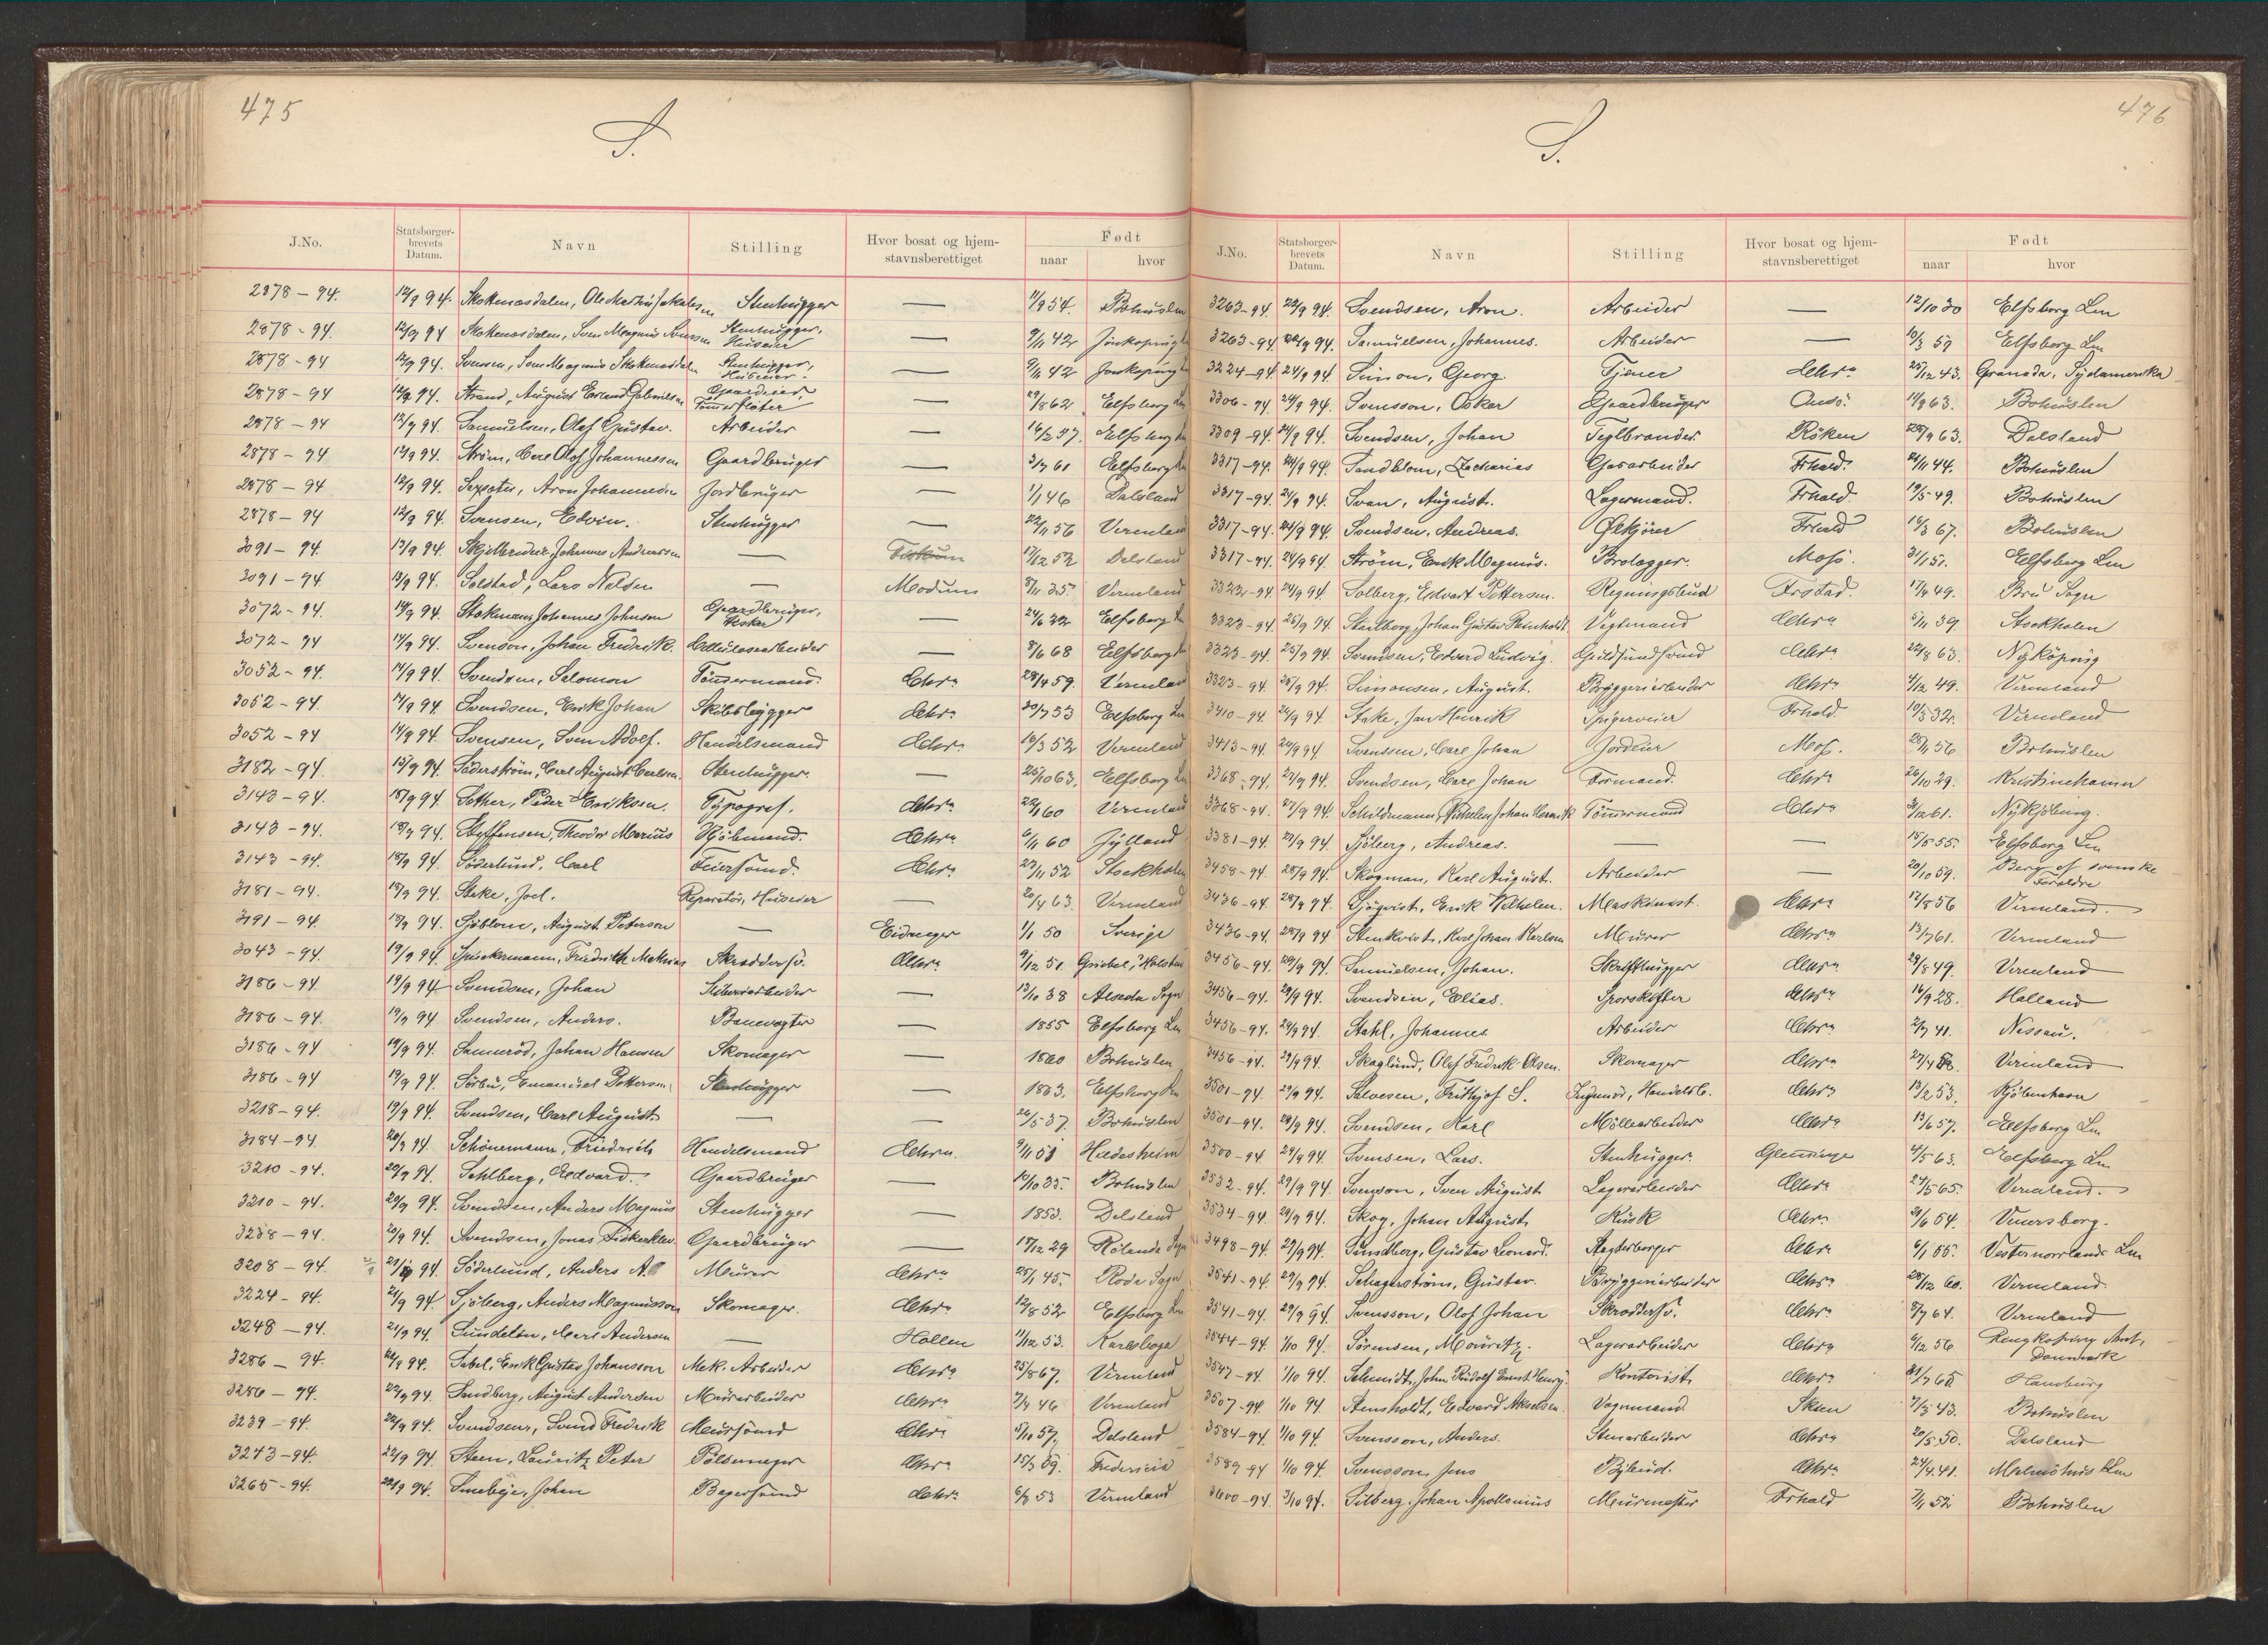 475
S.
J.No. Statsborger-brevets Datum. Navn Stilling Hvor bosat og hjem-stavnsberettiget Født naar hvor
2878 – 94. 12/9 94. Skokenæsdalen, Ole Stenhugger — 11/9 54. Bohuslen
2878 – 94. 12/9 94 Skokenæsdalen, Sven Magnus Svensson Stenhugger, Huseier — 9/11 42 Jönköping
2878 – 94 12/9 94. Svensen, Sven Magnus Skokenæsdalen Stenhugger, Huseier — 9/11 42 Jonkoping
2878 – 94 12/9 94. Strand, August Gabrielsen Gaardeier, Tömmerfløter — 29/8 62 Elfsborg Len
2878 – 94 12/9 94. Samuelsen, Olof Gustav. Arbeider — 16/2 37. Elfsborg
2878 – 94 12/9 94. Ström, Carl Olof Johannessen Gaardbruger — 3/7 61 Elfsborg
2878 – 94 12/9 94. Aron Johannesen Jordbruger — 1/1 46 Dalsland
2878 – 94 12/9 94. Svensen, Edvin. Stenhugger — 22/11 56 Vermland
3091 – 94. 13/9 94. Johannes Andreassen — Fiskum 17/12 52 Dalsland
3091 – 94 13/9 94. Solstad, Lars Nilsen — Modum 8/11 35. Vermland
3072 – 94. 14/9 94. Johannes Johnsen Gaardbruger, Fisker — 24/6 32 Elfsborg
3072 – 94 14/9 94. Svenson, Johan Fredrik. Cellulosearbeider — 8/6 68 Elfsborg
3052 – 94. 14/9 94. Svendsen, Salomon Tömmermand. Chra 28/4 59. Vermland
3052 – 94. 14/9 94. Svendsen, Erik Johan Skibsbygger Chra 20/7 53 Elfsborg Len
3052 – 94 14/9 94. Svensen, Sven Adolf. Handelsmand Chra 16/3 52 Vermland
3182 – 94. 15/9 94. Söderström, Carl August Carlsen. Stenhugger. — 25/10 63. Elfsborg
3143 – 94. 18/9 94. Sother, Peder Eriksen. Typograf. Chra 22/1 60 Vermland
3143 – 94. 18/9 94. Steffensen, Theodor Marius Kjøbmand. Chra 6/11 60 Jylland
3143 – 94. 18/9 94. Söderlund, Carl Feiersvend. Chra 23/11 52 Stockholm
3181 – 94. 18/9 94. Stake, Joel. Reparatør, Huseier — 20/4 63. Vermland
3191 – 94. 18/9 94. Sjöblom, August Peterson — Eidanger 1/1 50 Sverige
3043 – 94. 19/9 94. Spieckermann, Friedrich Mathias Skræddersv. Chra 9/12 51. Griebel, Holsten
3186 – 94. 19/9 94 Svendsen, Johan — 13/10 38 Alseda Sogn
3186 – 94. 19/9 94 Svendsen, Anders. Banevogter — 1855 Elfsborg Len
3186 – 94 19/9 94. Sannerød, Johan Hansen Skomager — 1860 Bohuslen
3186 – 94 19/9 94. Sørbu, Emanuel Pettersen Stenhugger — 1863. Elfsborg Len
3218 – 94. 19/9 94. Svendsen, Carl August — — 26/5 37. Bohuslen
3184 – 94. 20/9 94 Schönemann, Friedrich Handelsmand Chra. 9/11 51 Hildesheim
3210 – 94. 20/9 94. Sehlberg, Edvard. Gaardbruger — 10/10 35. Bohuslen
3210 – 94. 20/9 94. Svendsen, Anders Magnus Stenhugger — 1853. Dalsland
3238 – 94. 20/9 94. Svendsen, Jonas Gaardbruger — 17/12 29 Rölanda Sogn
3208 – 94. 21/9 94. Söderlund, Anders A. Murer Chra 25/1 45. Rode Sogn
3224 – 94. 21/9 94. Sjöberg, Anders Magnusson Skomager. Chra 12/8 52 Elfsborg Len
3248 – 94. 21/9 94. Sundelin, Carl Andersen — Hallen 11/12 53. Karlskoga
3286 – 94. 22/9 94. Sabel, Erik Gustav Johansson Mek. Arbeider Chra 25/8 67. Vermland
3286 – 94. 22/9 94. Sandberg, August Andersen Murarbeider Chra 7/4 46 Vermland
3239 – 94. 22/9 94. Svendsen, Svend Frederik Mursvend Chra 5/10 57. Dalsland
3243 – 94. 22/9 94. Steen, Lauritz Peter Pölsemager Chra 15/3 59. Fredericia
3265 – 94. 22/9 94. Smebye, Johan Bagersvend Chra 6/8 53 Vermland
476
S.
J.No. Statsborger-brevets Datum. Navn Stilling Hvor bosat og hjem-stavnsberettiget Født naar hvor
3263 – 94. 22/9 94. Svendsen, Aron. Arbeider — 12/10 30 Elfsborg Len
3263 – 94. 22/9 94. Samuelsen, Johannes. Arbeider — 10/3 59 Elfsborg Len
3224 – 94 24/9 94. Simon, Georg. Tjener Chra 25/12 43. Granada, Sydamerika
3306 – 94 24/9 94. Svensson, Oskar Gaardbruger 11/9 63. Bohuslen
3309 – 94. 24/9 94. Svendsen, Johan Teglbrænder Röken 28/9 63. Dalsland
3317 – 94. 24/9 94. Sandblom, Zacharias Gasarbeider Frhald. 24/11 44. Bohuslen
3317 – 94. 24/9 94. Svan, August. Lagermand. Frhald. 19/5 49. Bohuslen
3317 – 94. 24/9 94. Svendsen, Andreas. Ølkjører Frhald 16/3 67. Bohuslen
3317 – 94. 24/9 94 Ström, Erik Magnus. Brolægger. Moss. 31/1 51. Elfsborg Len
3322 – 94 24/9 94. Solberg, Edvart Pettersen. Regningsbud Frstad. 17/4 49. Bru Sogn
3323 – 94. 25/9 94. Stoltborg, Johan Gustav Reinholdt Vegtmand Chra 5/11 39. Stockholm
3323 – 94. 25/9 94. Svendsen, Edvard Ludvig. Guldsmedsvend Chra 22/8 63. Nyköping
3323 – 94. 25/9 94. Simonsen, August. Bryggeriarbeider Chra 4/12 49. Vermland
3410 – 94. 26/9 94. Stake, Jan Henrik Frhald. 10/3 32. Vermland
3413 – 94. 26/9 94 Svenssen, Carl Johan Jordeier Moss. 28/1 56 Bohuslen
3368 – 94. 27/9 94. Svendsen, Carl Johan Formand. Chra 26/10 29. Kristinehamn
3368 – 94. 27/9 94. Schildmann, Vilhelm Johan Henrik Tömmermand Chra 3/12 61. Nykjöbing.
3381 – 94. 27/9 94. Sjöberg, Andreas. — — 15/5 55. Elfsborg Len
3458 – 94. 28/9 94. Skogman, Karl August. Arbeider — 20/10 59. Berg af svenske Foræ​ldre
3436 – 94. 28/9 94. Sjöqvist, Erik Vilhelm. Maskinast. Chra 12/8 56 Vermland.
3436 – 94. 28/9 94 Stenkvist, Karl Johan Karlsen Murer Chra 13/7 61. Vermland
3456 – 94. 29/9 94. Samuelsen, Johan. Skrifthugger Chra 29/8 49. Vermland
3456 – 94. 29/9 94. Svendsen, Elias. Sporskifter Chra 16/9 28. Halland
3456 – 94. 29/9 94. Stahl, Johannes Arbeider Chra 2/7 41. Nassau.
3456 – 94. 29/9 94. Skoglund, Olof Fredrik Olsen. Skomager Chra Vermland
3501 – 94. 29/9 94. Salvesen, Frithjof S. Ingeniør, Handelsb. Chra 13/2 53. Kjöbenhavn
3501 – 94. 29/9 94. Svendsen, Karl Möllearbeider Chra 13/6 57. Elfsborg Len
3500 – 94 29/9 94. Svensen, Lars. Stenhugger Glemminge 4/5 63. Elfsborg Len
3532 – 94. 29/9 94. Svenson, Sven August Lagerarbeider Chra 24/5 65. Vermland.
3534 – 94. 29/9 94. Skog, Johan August Kusk Chra 21/6 54. Venersborg.
3498 – 94. 29/9 94. Sundberg, Gustav Leonard. Chra 6/1 55. Vesternorrlands Len
3541 – 94. 29/9 94. Schagerström, Gustav. Bryggeriarbeider Chra 28/12 60. Vermland.
3541 – 94. 29/9 94. Svensson, Olof Johan Skræddersv. Chra 8/7 64. Vermland
3544 – 94. 1/10 94. Sörensen, Mouritz. Lagerarbeider Chra 6/12 56 Ringkøbing Amt, Danmark
3547 – 94. 1/10 94. Schmidt, John Rudolf Ernst Henry. Kontorist Chra 21/7 65 Hamburg
3507 – 94. 1/10 94 Stensholdt, Edvard Akselsen. Vognmand Skien 7/3 43. Bohuslen
3584 – 94. 1/10 94. Svensson, Anders. Stenarbeider Chra 20/5 50. Dalsland
3589 – 94 1/10 94. Svensson, Jens Bybud. Chra 24/4 41. Malmöhus Len
3600 – 94. 3/10 94. Silberg, Johan Apollonius Murmester Frhald 7/1 52 Bohuslen